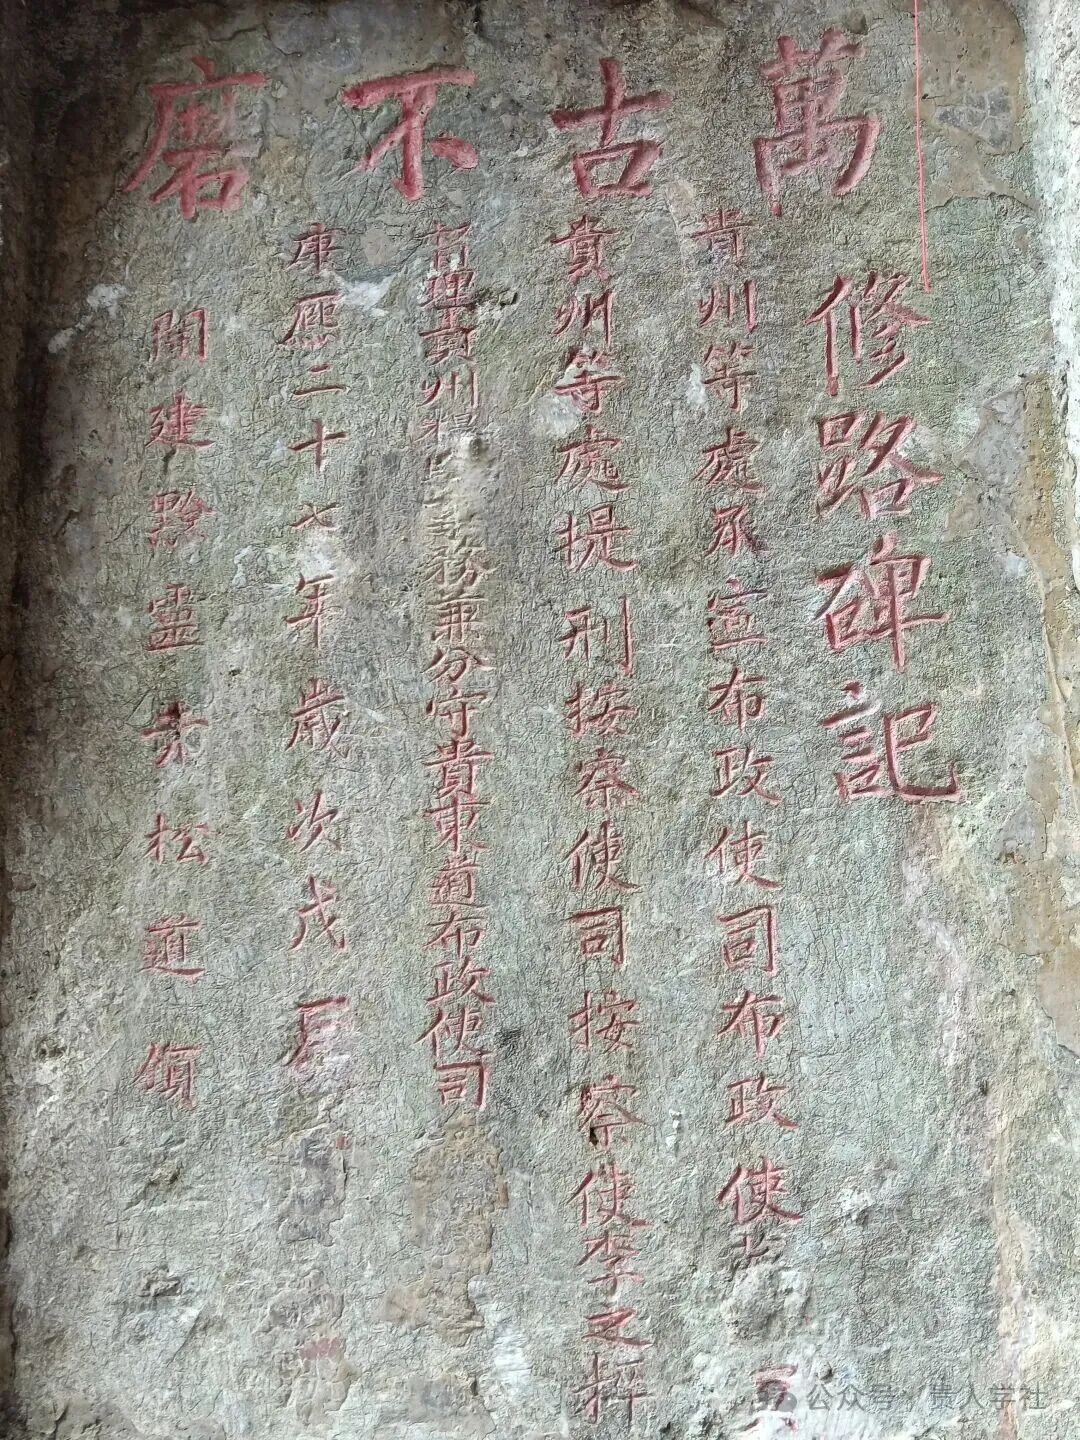 萬古不磨
修路碑記
貴州等處承宣布政使司布政使
貴州等處提刑按察使司按察使李之粹
督理貴州糧 務兼分守貴東道布政使司
康熙二十七年歲次戊辰
開建黔靈赤松道領
公众号·贵人学社